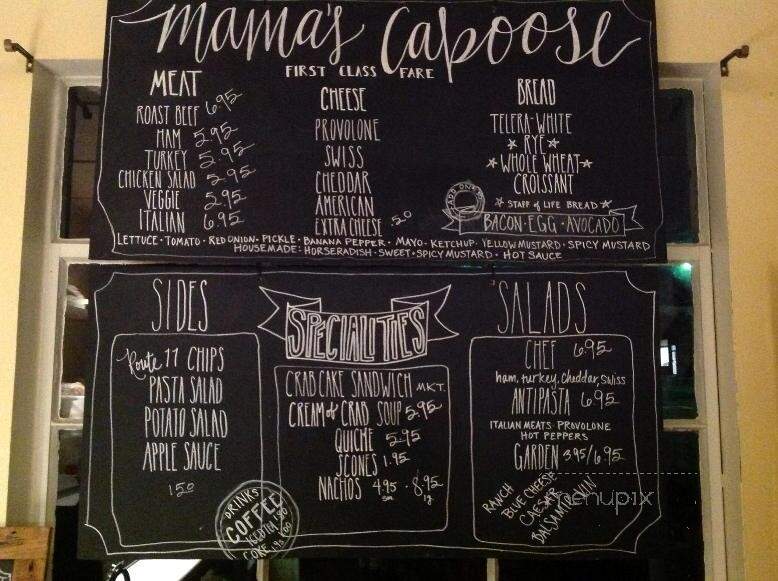 Mama's Caboose
FIRST CLASS FARE
MEAT
ROAST BEEF 6.95
HAM 5.95
TURKEY 5.95
CHICKEN SALAD 5.95
VEGGIE 5.95
ITALIAN 6.95
CHEESE
PROVOLONE
SWISS
CHEDDAR
AMERICAN
EXTRA CHEESE .50
BREAD
TELERA-WHITE
* RYE *
* WHOLE WHEAT *
CROISSANT
* STAFF of LIFE BREAD *
ADD ONS
BACON · EGG · AVOCADO
LETTUCE · TOMATO · RED ONION · PICKLE · BANANA PEPPER · MAYO · KETCHUP · YELLOW MUSTARD · SPICY MUSTARD
HOUSEMADE: HORSERADISH · SWEET · SPICY MUSTARD · HOT SAUCE
SIDES
Route 11 CHIPS
PASTA SALAD
POTATO SALAD
APPLE SAUCE
1.50
DRINKS
COFFEE
COKE
SPECIALITIES
CRAB CAKE SANDWICH MKT.
CREAM of CRAB SOUP 5.95
QUICHE 5.95
SCONES 1.95
NACHOS 4.95 sm · 8.95 lg
SALADS
CHEF 6.95
ham, turkey, Cheddar, Swiss
ANTIPASTA 6.95
ITALIAN MEATS · PROVOLONE
HOT PEPPERS
GARDEN 3.95/6.95
RANCH
BLUE CHEESE
CAESAR
BALSAMIC VIN
menupix